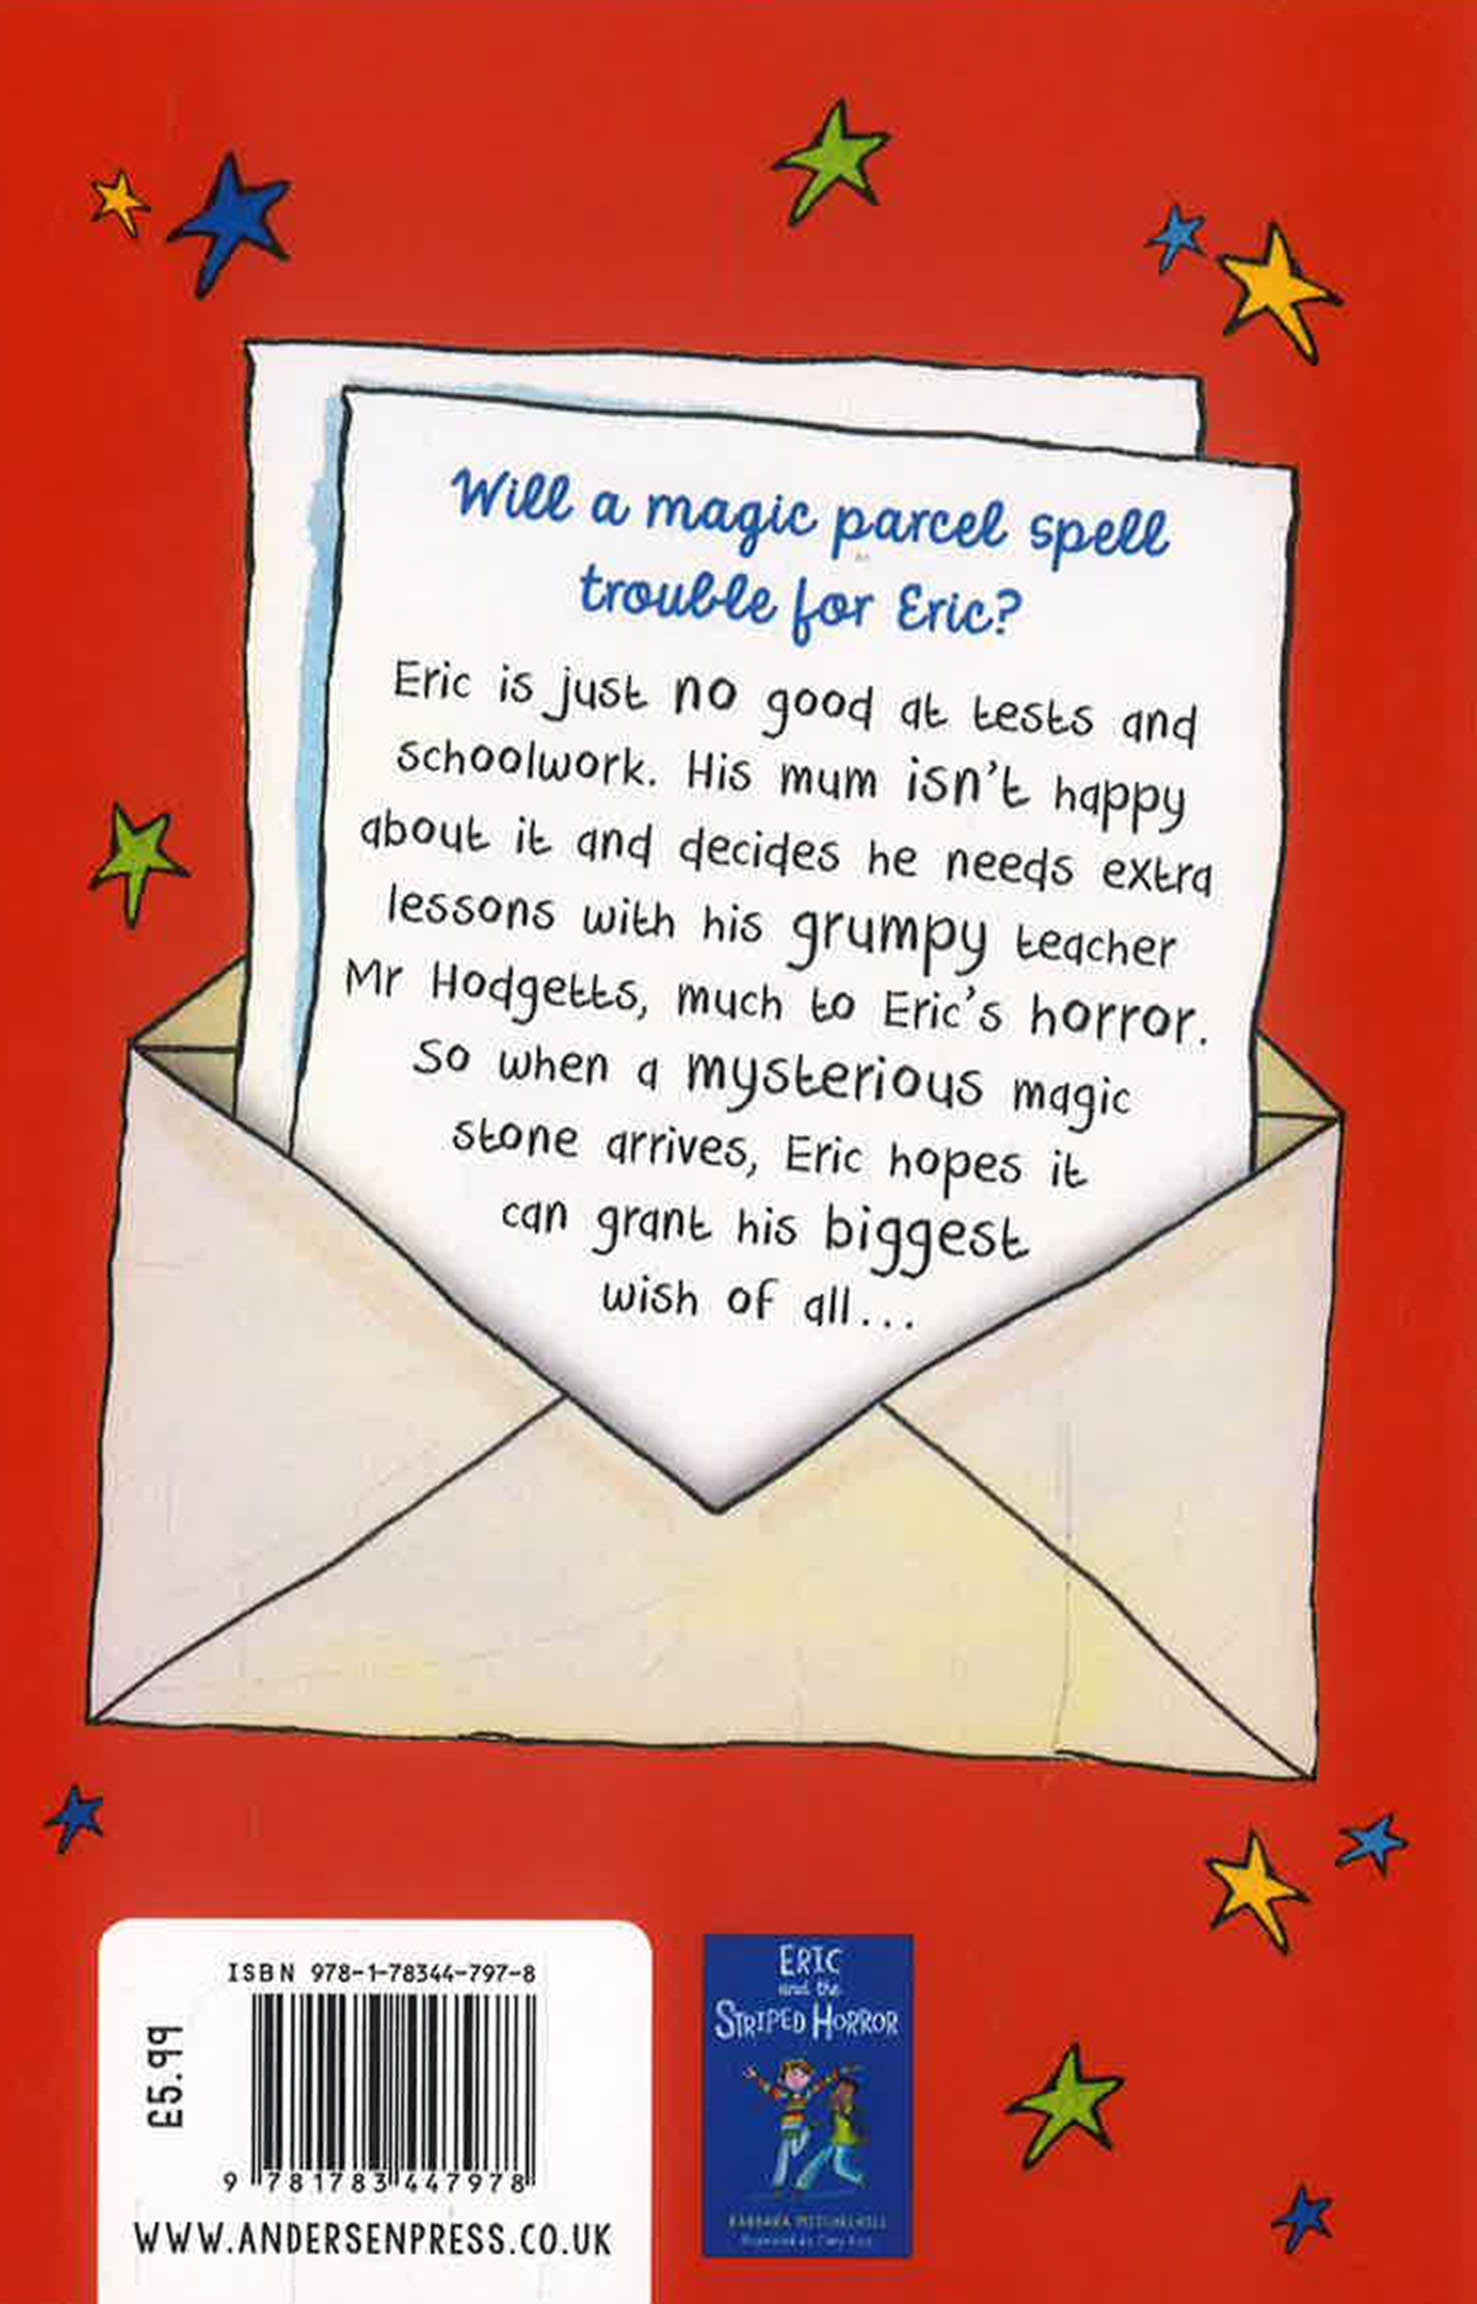 Will a magic parcel spell
trouble for Eric?
Eric is just no good at tests and
schoolwork. His mum isn't happy
about it and decides he needs extra
lessons with his grumpy teacher
Mr Hodgetts, much to Eric's horror.
So when a mysterious magic
stone arrives, Eric hopes it
can grant his biggest
wish of all...
ISBN 978-1-78344-797-8
£5.99
9 781783 447978
WWW.ANDERSENPRESS.CO.UK
ERIC
and the
STRIPED HORROR
BARBARA MITCHELHILL